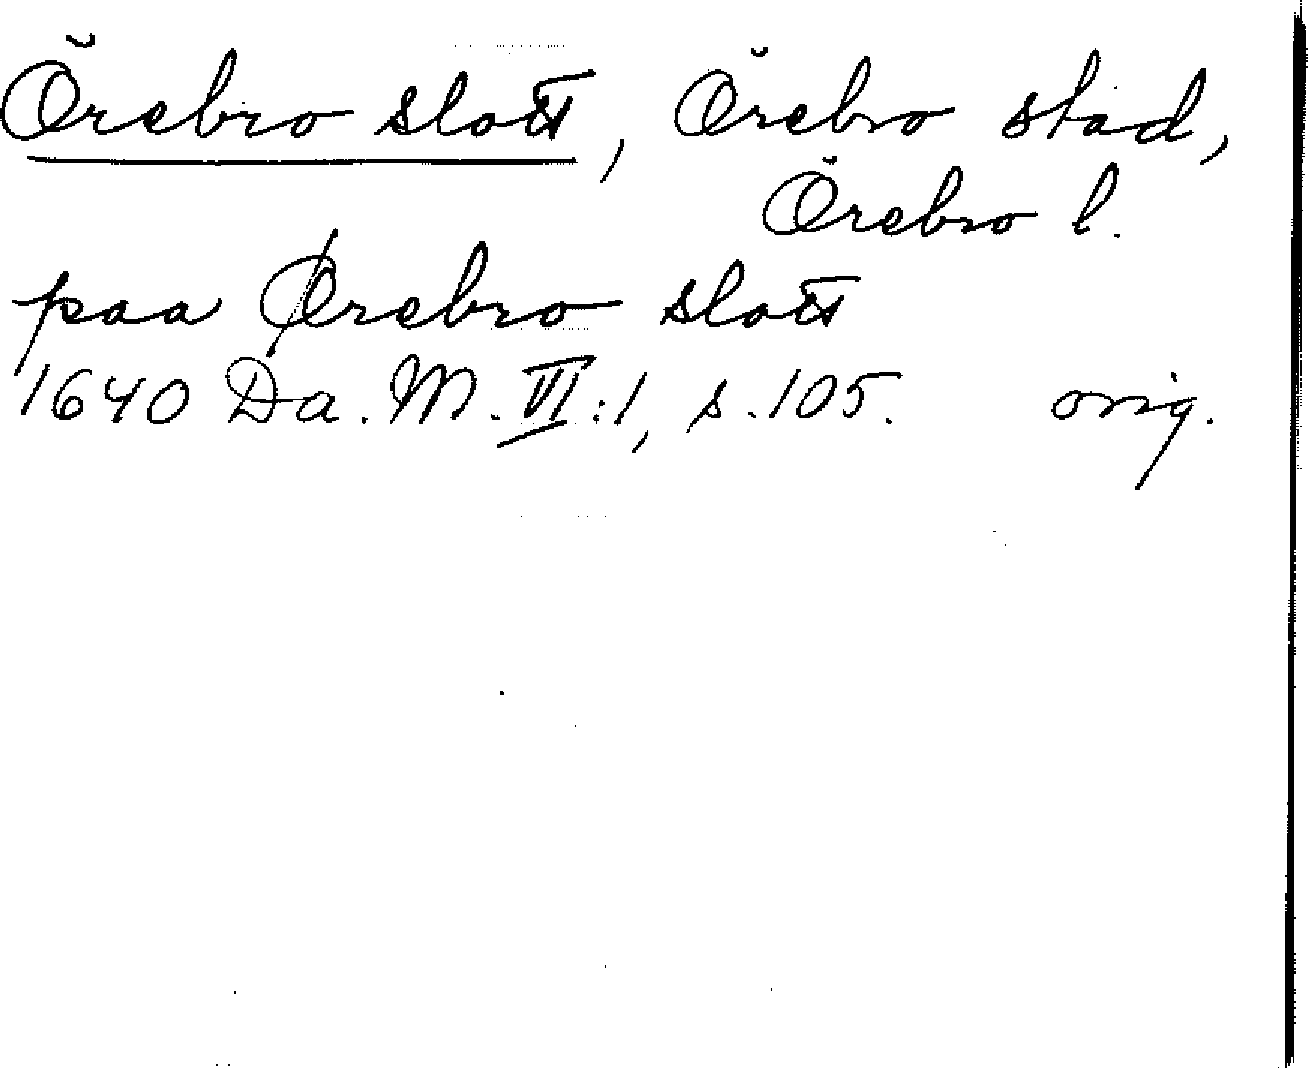 Örebro slott, Örebro stad,
Örebro l.
paa Ørebro slott
1640 Da. M. VI:1, s. 105. orig.